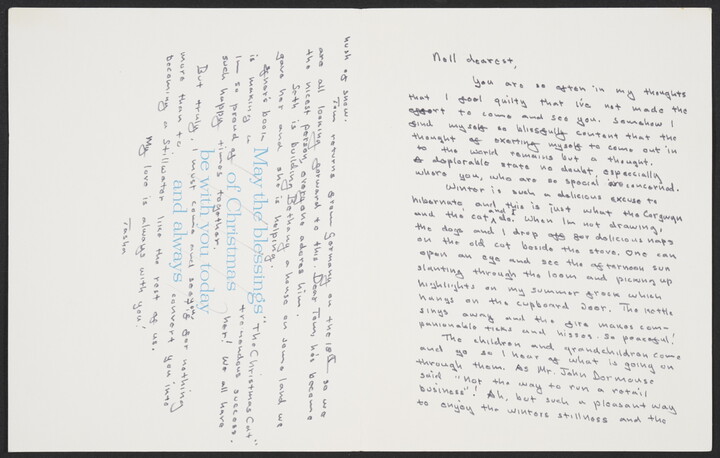 Nell dearest,
You are so often in my thoughts
that I feel guilty that I've not made the
effort to come and see you. Somehow I
find myself so blissfully content that the
thought of exerting myself to come out in
to the world remains but a thought.
A deplorable state no doubt, especially
where you, who are so special are concerned.
Winter is such a delicious excuse to
hibernate, and this is just what the Corgwyn
and the cat, and I do. When I'm not drawing,
the dogs and I drop off for delicious naps
on the old cot beside the stove. One can
open an eye and see the afternoon sun
slanting through the loom and picking up
highlights on my summer frock which
hangs on the cupboard door. The kettle
sings away and the fire makes com-
panionable ticks and hisses. So peaceful!
The children and grandchildren come
and go so I hear of what is going on
through them. As Mr. John Dormouse
said "not the way to run a retail
business"! Ah, but such a pleasant way
to enjoy the winters stillness and the
hush of snow.
Tom returns from Germany on the 18th, so we
are all looking forward to this. Dear Tom, he's become
the nicest person, everyone adores him.
Seth is building Bethany a house on some land we
gave her and she is helping.
Efner's book "The Christmas Cat"
is making a tremendous success.
I'm so proud of her! We all have
such happy times together.
But truly, must come and see for nothing
more than to convert you into
becoming a Stillwater like the rest of us.
My love is always with you!
Tasha
May the blessings
of Christmas
be with you today
and always